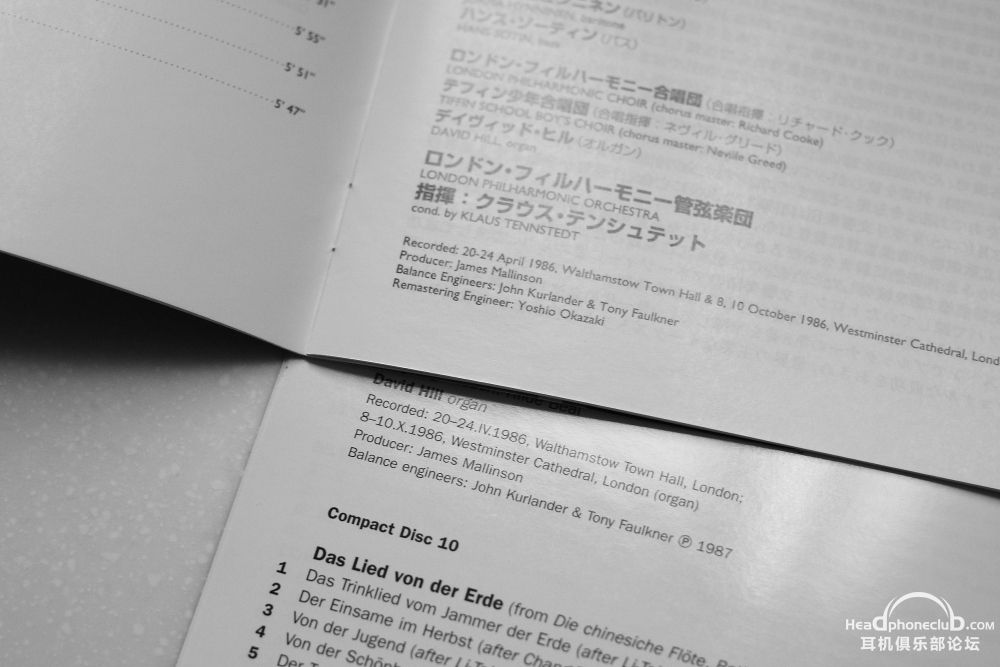 5' 55"
5' 51"
5' 47"
ハンス・ゾーティン (バス)
HANS SOTIN, bass
ロンドン・フィルハーモニー合唱団 (合唱指揮:リチャード・クック)
LONDON PHILHARMONIC CHOIR (chorus master: Richard Cooke)
テフィン少年合唱団 (合唱指揮:ネヴィル・グリード)
TIFFIN SCHOOL BOY'S CHOIR (chorus master: Neville Greed)
デイヴィッド・ヒル (オルガン)
DAVID HILL, organ
ロンドン・フィルハーモニー管弦楽団
LONDON PHILHARMONIC ORCHESTRA
指揮:クラウス・テンシュテット
cond. by KLAUS TENNSTEDT
Recorded: 20-24 April 1986, Walthamstow Town Hall & 8, 10 October 1986, Westminster Cathedral, Lond
Producer: James Mallinson
Balance Engineers: John Kurlander & Tony Faulkner
Remastering Engineer: Yoshio Okazaki
David Hill organ
Recorded: 20–24.IV.1986, Walthamstow Town Hall, London;
8–10.X.1986, Westminster Cathedral, London (organ)
Producer: James Mallinson
Balance engineers: John Kurlander & Tony Faulkner ℗ 1987
Compact Disc 10
Das Lied von der Erde (from Die chinesiche Flöte,
1 Das Trinklied vom Jammer der Erde (after Li-T
2 Der Einsame im Herbst (after Chang
3 Von der Jugend (after Li-T
4 Von der Schönh
5 Der T
Headphoneclub.com
耳机俱乐部论坛